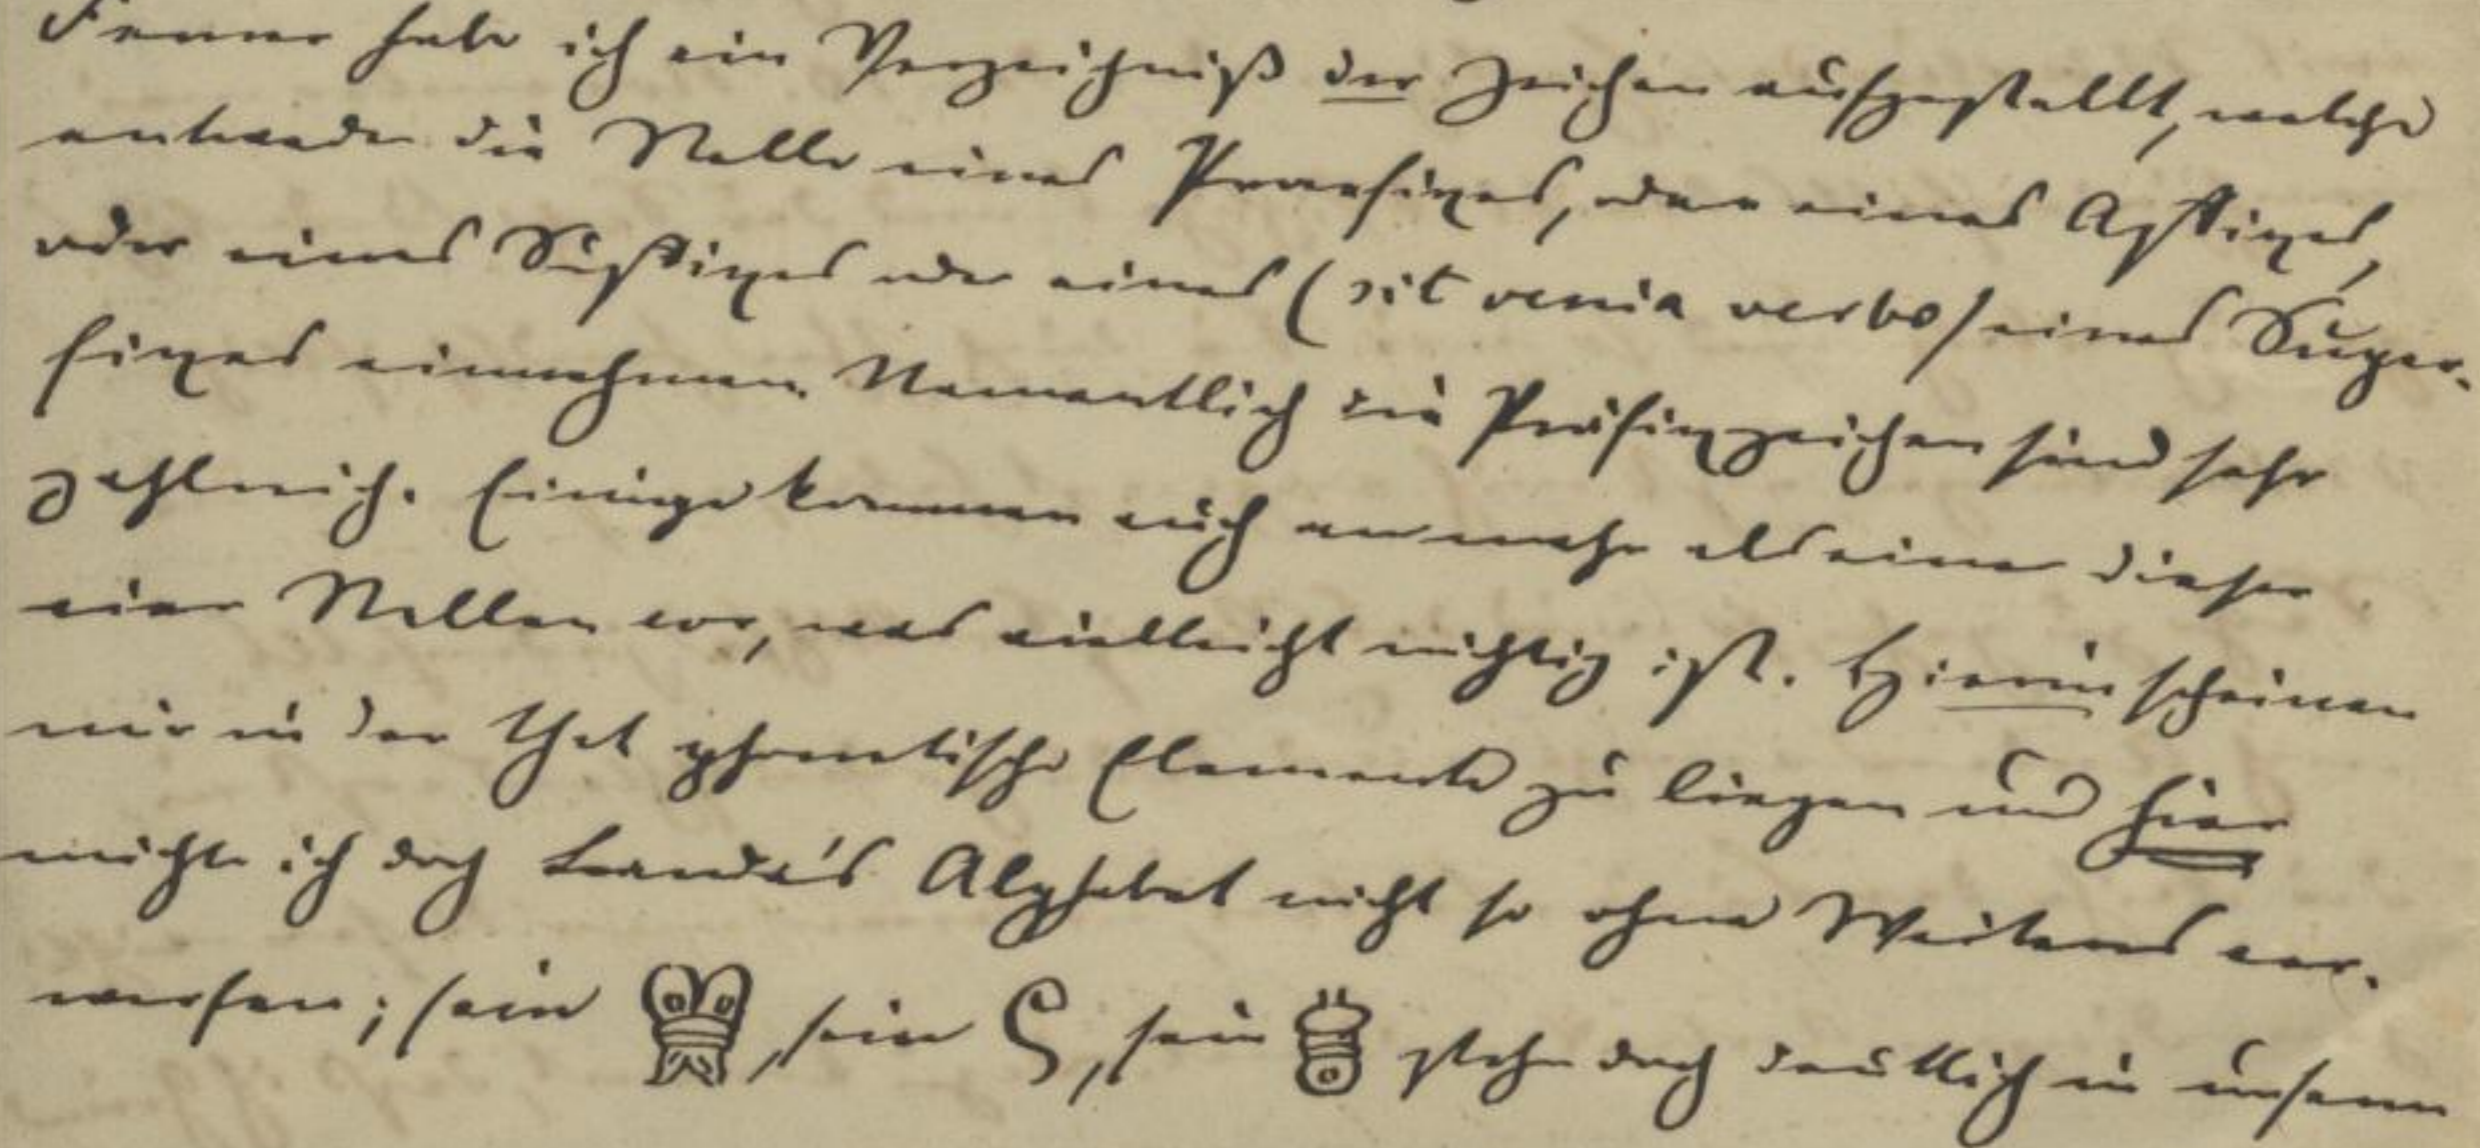 Ferner habe ich ein Verzeichniß der Zeichen aufgestellt, welche
entweder die Stelle eines Praefixes, oder eines Affixes,
oder eines Suffixes oder eines (sit venia verbo) eines Super-
fixes einnehmen. Namentlich die Präfixzeichen sind sehr
zahlreich. Einige kommen auch an mehr als einer dieser
vier Stellen vor, was vielleicht wichtig ist. Hierin scheinen
mir in der That phonetische Elemente zu liegen und hier
möchte ich doch Landa's Alphabet nicht so ohne Weiteres ver-
werfen; sein , sein , sein stehn doch deutlich in unsern